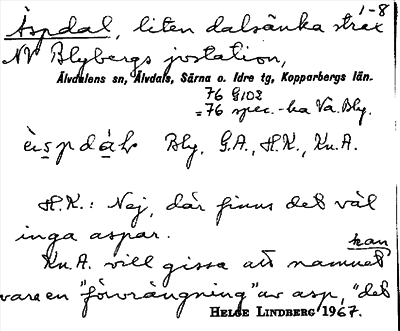 1-8
Äspdal, liten dalsänka strax
NV Blybergs jvstation,
Älvdalens sn, Älvdals, Särna o. Idre tg, Kopparbergs län.
76 G102
= 76 spec.-ka Va. Bly.
Bly, G.A., H.K., Kn.A.
H.K.: Nej, där finns det väl
inga aspar.
Kn.A. vill gissa att namnet kan
vara en "förvrängning" av asp, "det
HELGE LINDBERG 1967.